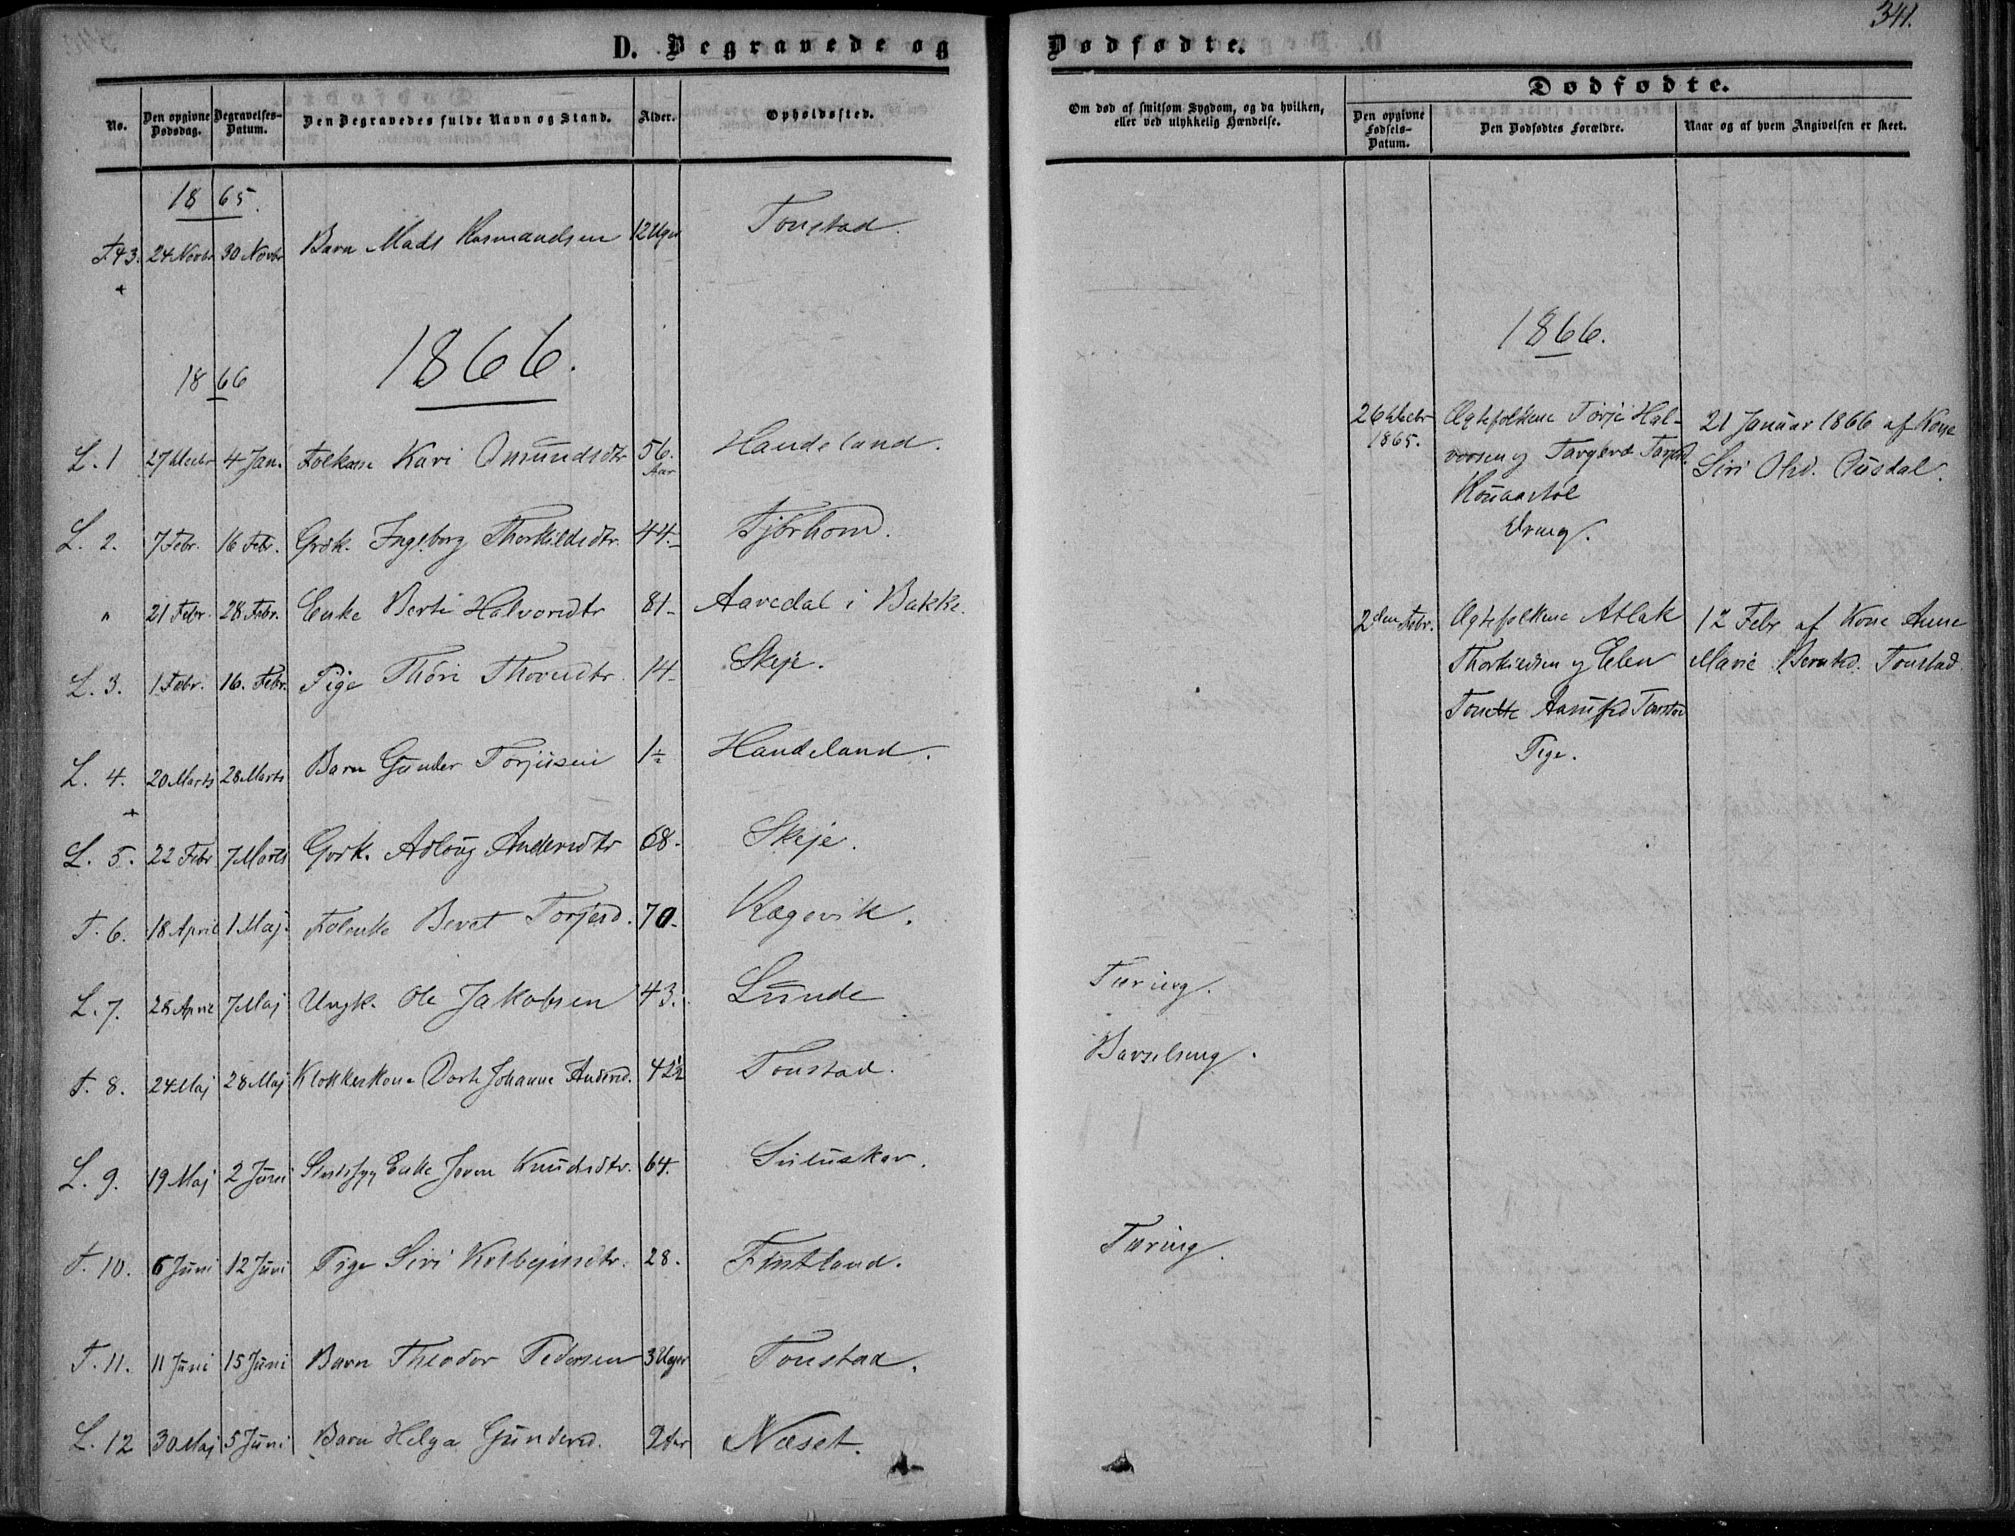 341.
D. Begravede og Dødfødte.
No.
Den opgivne Dødsdag.
Begravelses-Datum.
Den Begravedes fulde Navn og Stand.
Alder.
Opholdssted.
Om død af smitsom Sygdom, og da hvilken, eller ved ulykkelig Hændelse.
Dødfødte.
Den opgivne Fødsels-Datum.
Den Dødfødtes Forældre.
Naar og af hvem Angivelsen er skeet.
1865.
T.43. 24 Novbr 30 Novbr Barn Mads Rasmandsen 12 Uger Tonstad.
1866 1866.
L. 1 27 Decbr 4 Jan. Kari Omundsdtr 56. Aar Handeland.
L. 2. 7 Febr. 16 Febr. Ingeborg Thorkildsdtr. 44.- Tjørhom.
" 21 Febr. 28 Febr. Enke Berte Halvorsdtr 81- Aavedal i Bakke.
L. 3. 1 Febr. 16. Febr. Pige Thori 14- Skeje.
L. 4. 20 Marts 28 Marts Barn Gunder Torjusen Handeland.
L. 5. 22 Febr 7 Marts Asloug Andersdtr 68. Skeje.
T. 6. 18 April 1 Maj. Beret Torjesd. 70- Kægevik.
L. 7. 28 April 7 Maj Ungk. Ole Jakobsen 43. Lunde Tæring.
T. 8. 24 Maj 28 Maj Klokkerkone Dorte Johanne Andersd. 42½ Tonstad. Barselseng.
L. 9. 19 Maj 2 Juni Enke Joren Knudsdtr. 64. Suluskar.
T. 10. 6 Juni 12 Juni Pige Siri Kolbejnsdtr. 28. Fintland. Tæring.
T. 11. 11 Juni 15 Juni Barn Theodor Pedersen 3 Uger Tonstad.
L. 12 30 Maj 5 Juni Barn Helga Gundersd. 2 Aar Næset.
1866.
26 Decbr Ægtefolkene Torje Hal- 21 Januar 1866 af Kone
1865. vorsen og Siri Olsd. Ousdal.
Kouaastøl
Dreng.
2den Febr. Ægtefolkene Atlak 12 Febr af Kone Anne
Thorkildsen og Elen Marie Berntsd. Tonstad.
Tonette Tonstad
Pige.